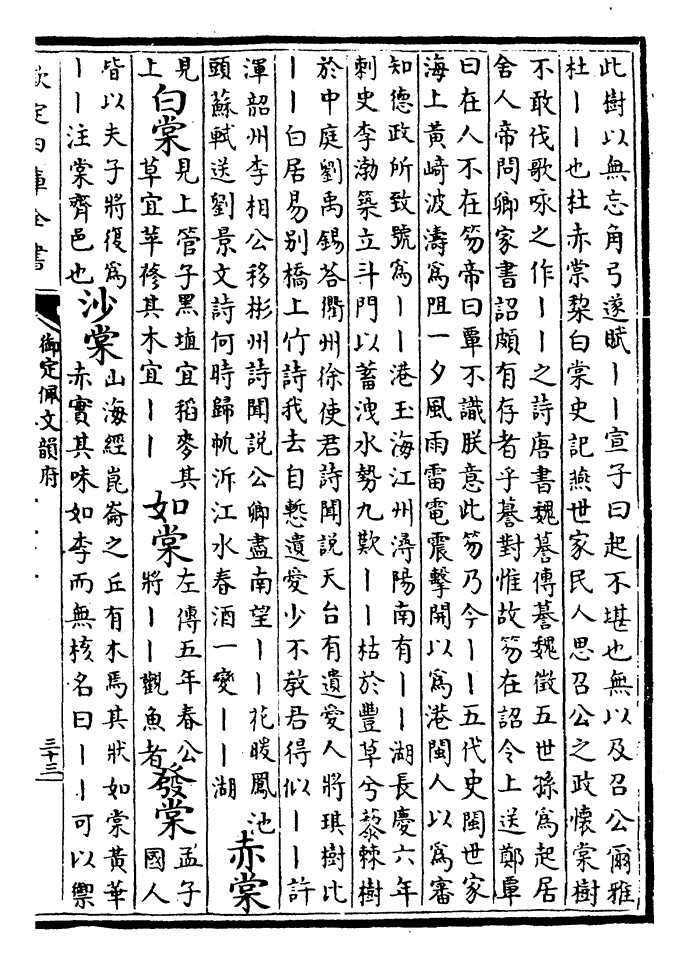 此樹以無忘角弓遂賦丨丨宣子曰起不堪也無以及召公爾雅
杜丨丨也杜赤棠棃白棠史記燕世家民人思召公之政懷棠樹
不敢伐歌咏之作丨丨之詩唐書魏謩傳謩魏徵五世孫為起居
舍人帝問卿家書詔頗有存者乎謩對惟故笏在詔令上送鄭覃
曰在人不在笏帝曰覃不識朕意此笏乃今丨丨五代史閩世家
海上黃崎波濤為阻一夕風雨雷電震擊開以為港閩人以為審
知德政所致號為丨丨港玉海江州潯陽南有丨丨湖長慶六年
刺史李渤築立斗門以蓄洩水勢九歎丨丨枯於豐草兮藜棘樹
於中庭劉禹錫荅衢州徐使君詩聞說天台有遺愛人將琪樹比
丨丨白居易別橋上竹詩我去自慙遺愛少不教君得似丨丨許
渾韶州李相公移彬州詩聞說公卿盡南望丨丨花暖鳳池
頭蘇軾送劉景文詩何時歸帆泝江水春酒一變丨丨湖
赤棠
見
上
白棠
見上管子黑埴宜稻麥其
草宜苹蓨其木宜丨丨
如棠
左傳五年春公
將丨丨觀魚者
發棠
孟子
國人
皆以夫子將復為
丨丨注棠齊邑也
沙棠
山海經崑崙之丘有木焉其狀如棠黃華
赤實其味如李而無核名曰丨丨可以禦
欽定四庫全書
御定佩文韻府
三十三